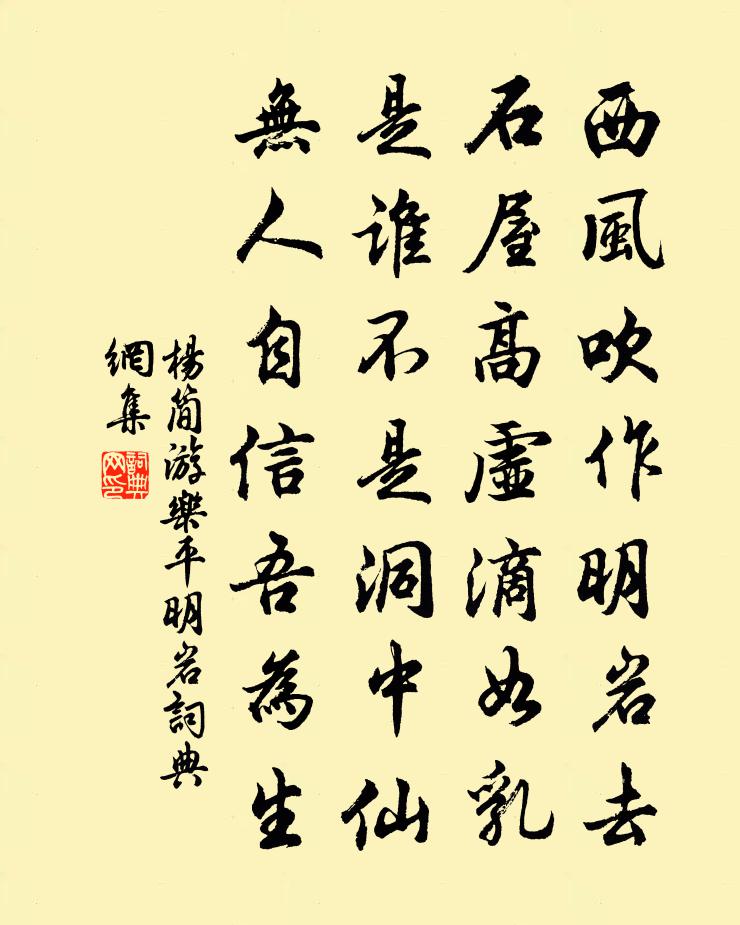 西風吹作明岩去
石屋高虛滴如乳
是誰不是洞中仙
無人自信吾為生
楊簡游樂平明岩詞典
網集
詞典網印